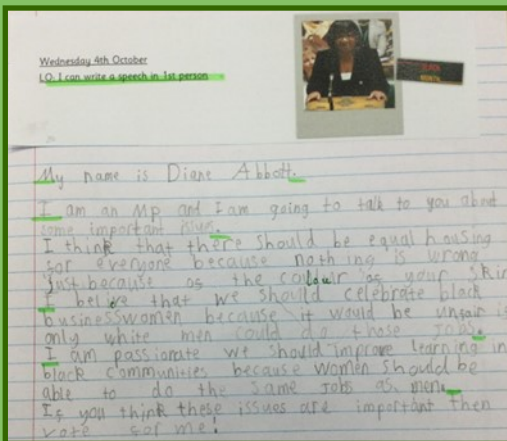 Wednesday 4th October
LO. I can write a speech in 1st person
BLACK
MONTH
My name is Diane Abbott.
I am an MP and I am going to talk to you about
some important isiues.
I think that there should be equal housing
for everyone because nothing is wrong
just because of the colour of your skin
I believe that we should celebrate black
businesswomen because it would be unfair if
only white men could do those jobs.
I am passionate we should improve learning in
black communities because women should be
able to do the same jobs as men.
If you think these issues are important then
vote for me!